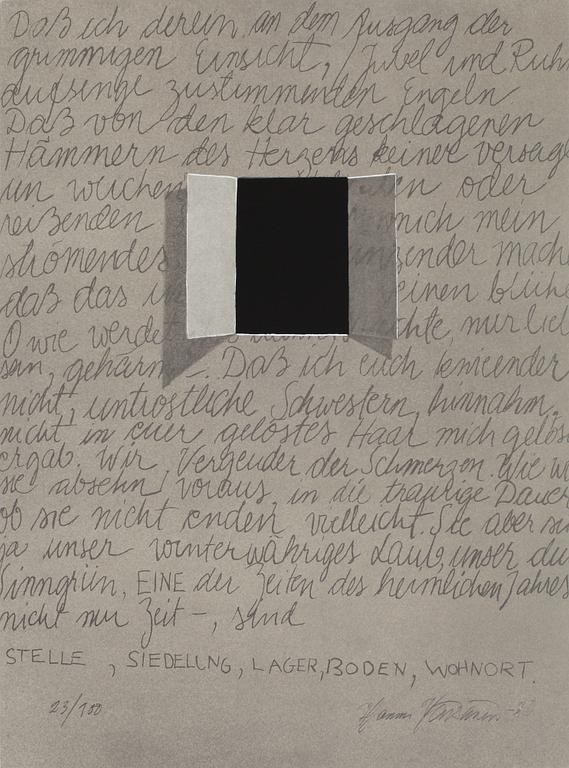 Daß ich dereinst an dem Ausgang der
grimmigen Einsicht, Jubel und Ruhm
aufsinge zustimmenden Engeln
Daß von den klar geschlagenen
Hämmern des Herzens keiner versage
un weichen oder
reißenden mich mein
strömendes
daß das
O wie werdet nur lieb
sein, gehärmte. Daß ich euch knieender
nicht, untröstliche Schwestern, hinnahm,
nicht in euer gelöstes Haar mich gelöse
ergab. Wir, Vergeuder der Schmerzen. Wie wi
sie absehn voraus, in die traurige Dauer
ob sie nicht enden vielleicht. Sie aber sin
ja unser winterwähriges Laub, unser du
Sinngrün, EINE der Zeiten des heimlichen Jahres
nicht nur Zeit -, sind
STELLE , SIEDELUNG, LAGER, BODEN, WOHNORT.
23/100